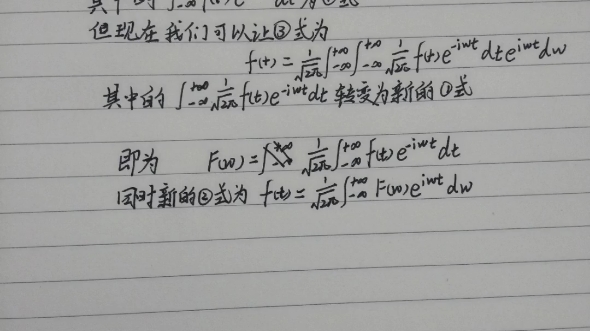 其中的 ∫-∞
但现在我们可以让③式为
f(t)=1/√2π ∫-∞+∞ ∫-∞+∞ 1/√2π f(t)e-iwt dt eiwt dw
其中的 ∫-∞+∞ 1/√2π f(t)e-iwt dt 转变为新的①式
即为 F(w)= 1/√2π ∫-∞+∞ f(t)e-iwt dt
同时新的②式为 f(t)=1/√2π ∫-∞+∞ F(w)eiwt dw